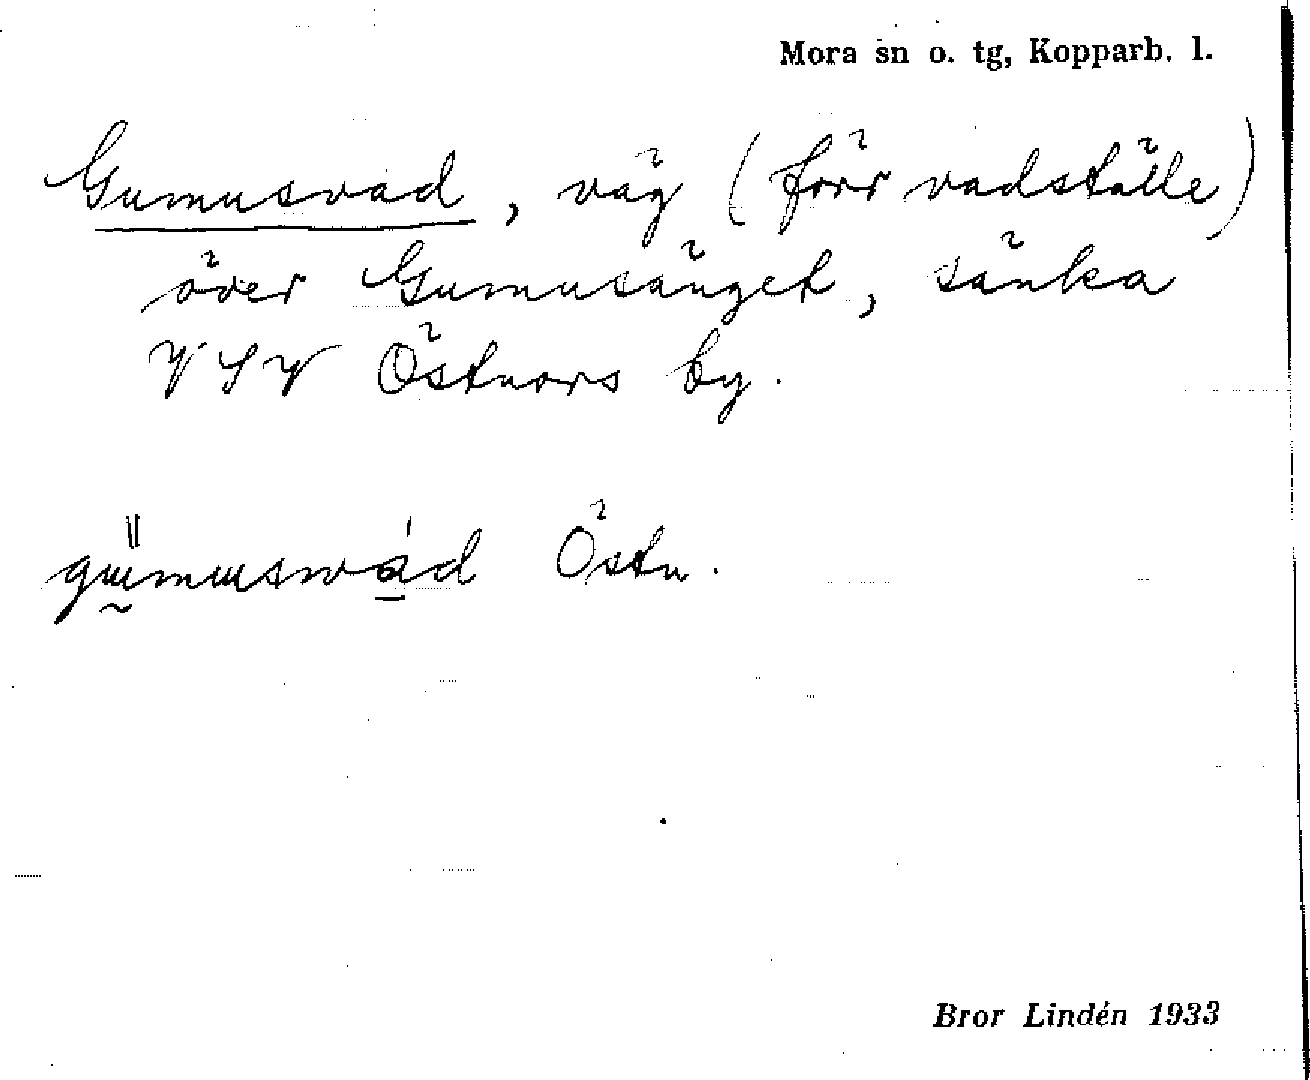 Mora sn o. tg, Kopparb. l.
Gumusvad, väg (förr vadställe)
över Gumusänget, sänka
VSV Östnors by.
gumuswad Östn.
Bror Lindén 1933